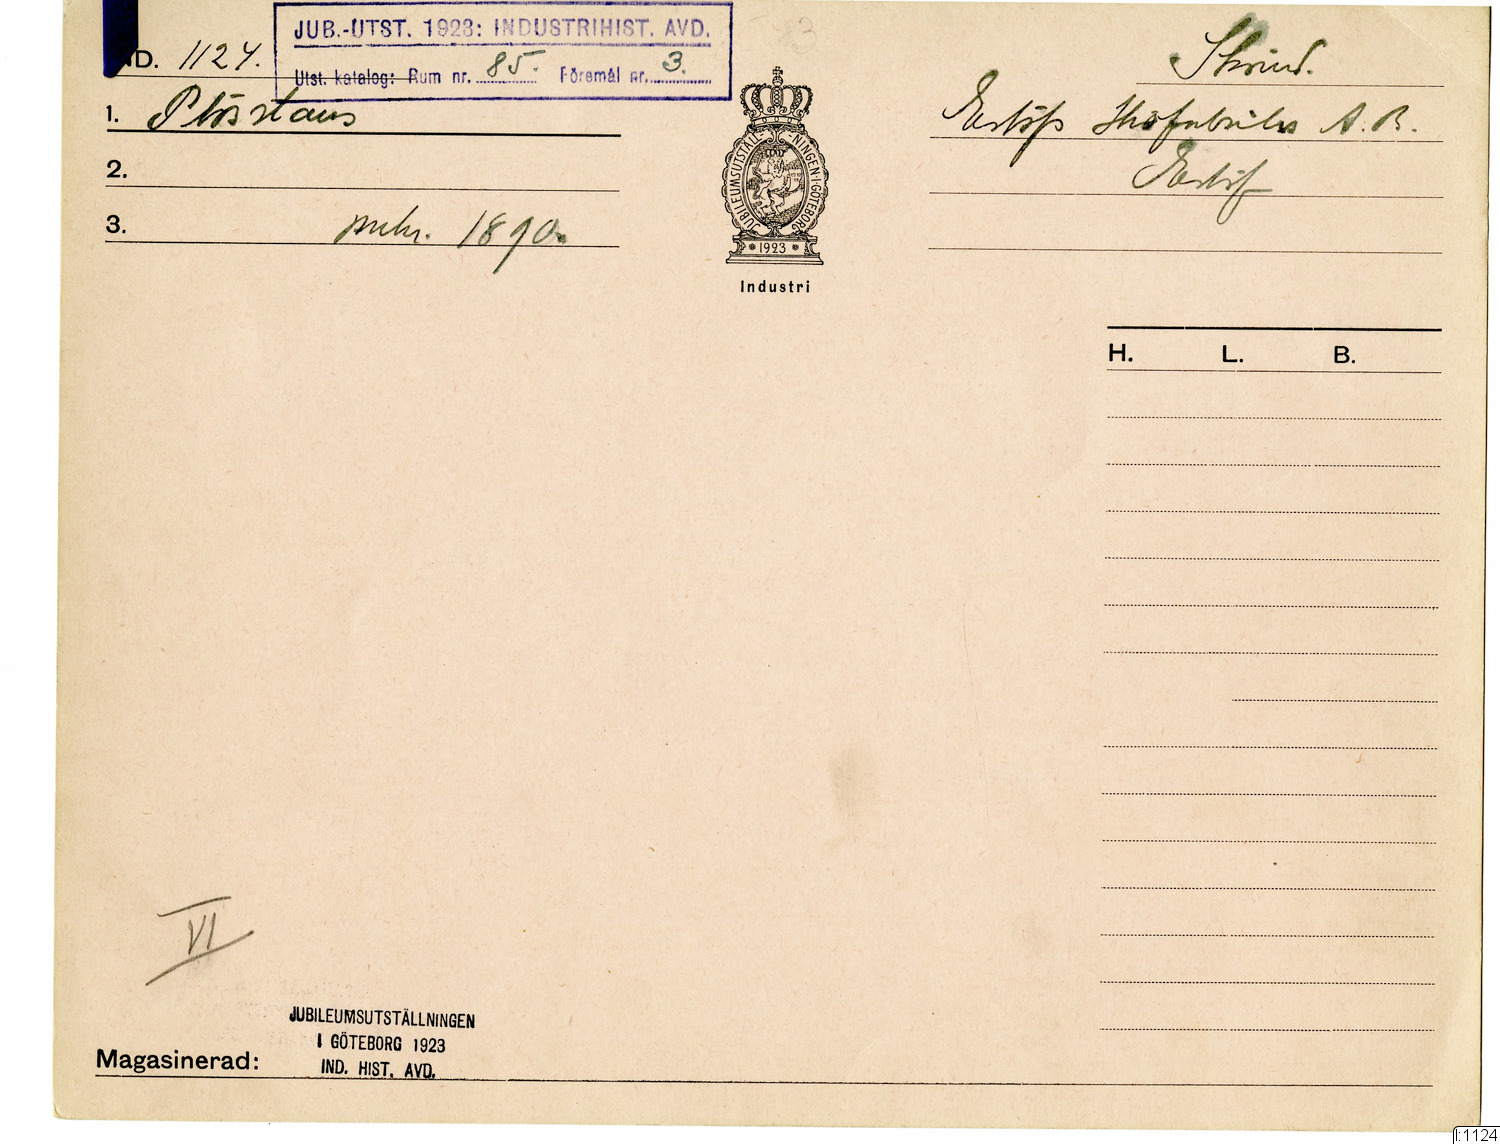 JUB.-UTST. 1923: INDUSTRIHIST. AVD.
Utst. katalog: Rum nr. 85. Föremål nr. 3.
ND. 1124.
1.
2.
3. 1890.
JUBILEUMSUTSTÄLLNINGEN I GÖTEBORG
1923
Industri
Eslöfs Skofabriks A.B.
Eslöf
H. L. B.
VI
JUBILEUMSUTSTÄLLNINGEN
I GÖTEBORG 1923
IND. HIST. AVD.
Magasinerad:
I:1124